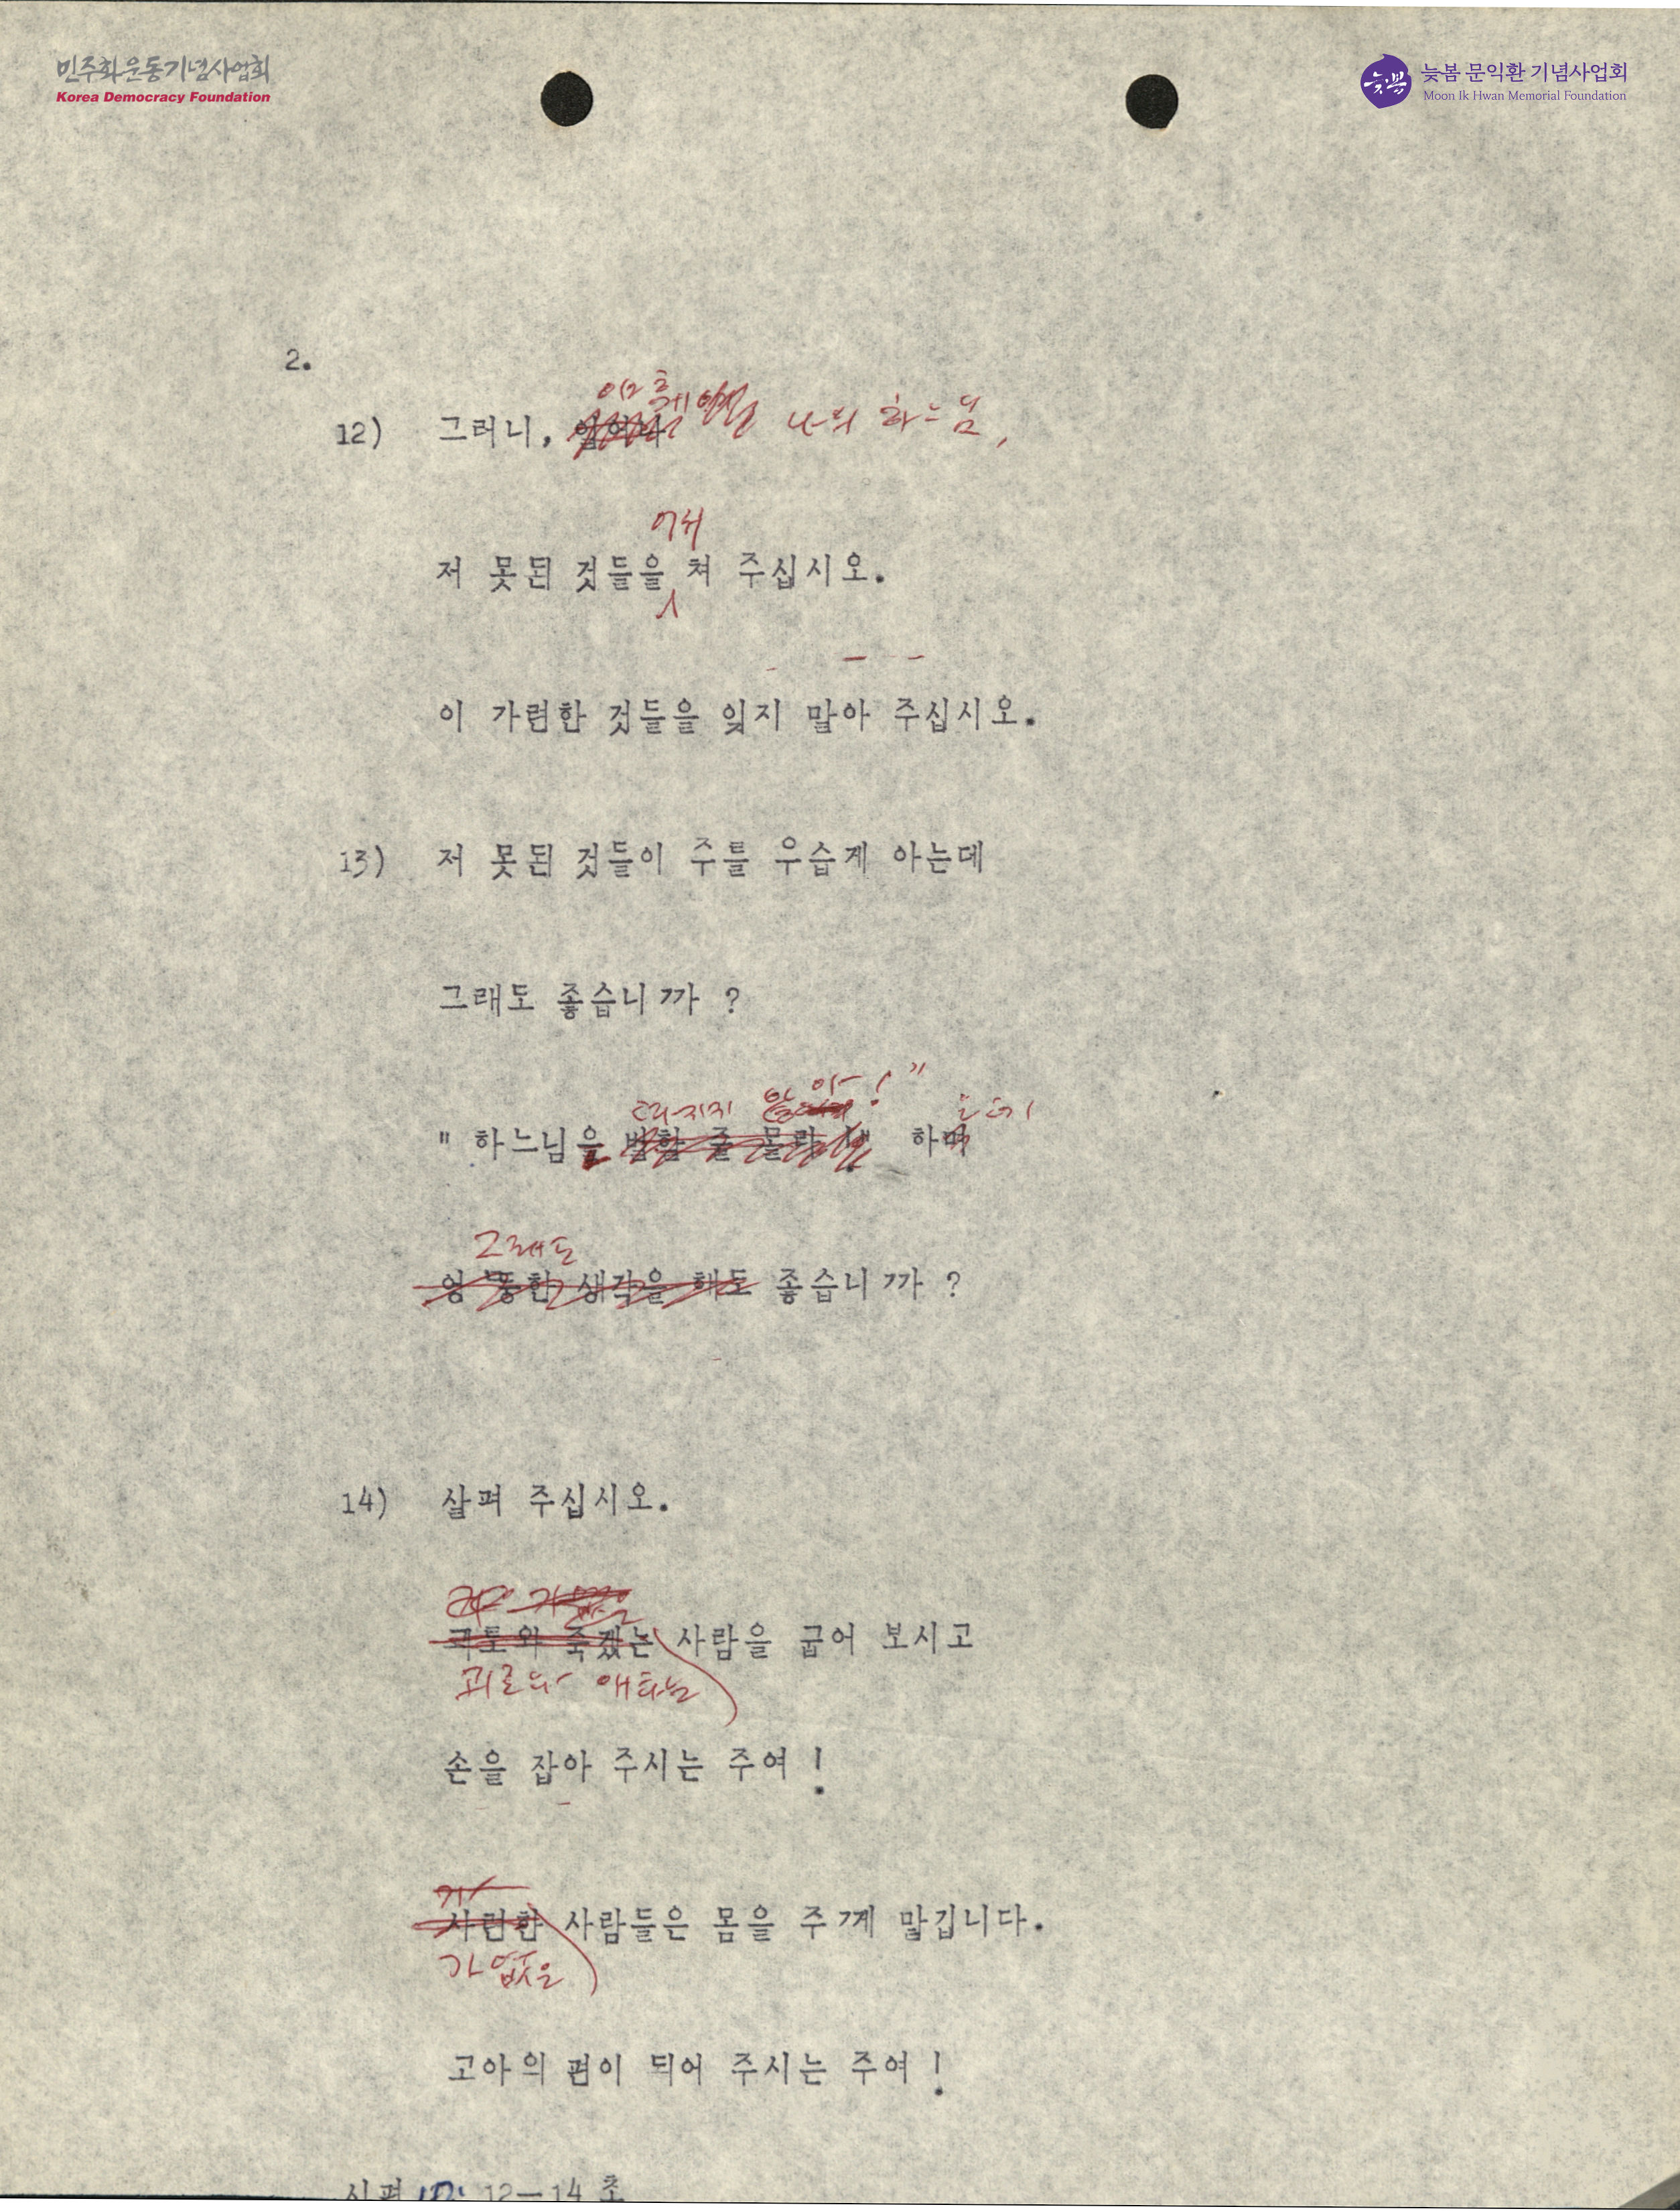 민주화운동기념사업회
Korea Democracy Foundation
늦봄
늦봄 문익환 기념사업회
Moon Ik Hwan Memorial Foundation
2.
야훼 나의 하느님,
12) 그러니,
어서
저 못된 것들을 쳐 주십시오.
이 가련한 것들을 잊지 말아 주십시오.
13) 저 못된 것들이 주를 우습게 아는데
그래도 좋습니까 ?
따지지 않아! " 는데
" 하느님을 벌할 줄 몰라 하며
그래도
엉뚱한 생각을 해도 좋습니까 ?
14) 살펴 주십시오.
가엾은
죽겠는 사람을 굽어 보시고
괴로워 애타는
손을 잡아 주시는 주여 !
가
가련한 사람들은 몸을 주께 맡깁니다.
가엾은
고아의 편이 되어 주시는 주여 !
시편 10: 12-14 초